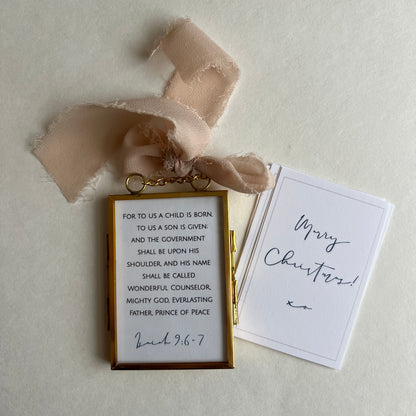 FOR TO US A CHILD IS BORN,
TO US A SON IS GIVEN;
AND THE GOVERNMENT
SHALL BE UPON HIS
SHOULDER, AND HIS NAME
SHALL BE CALLED
WONDERFUL COUNSELOR,
MIGHTY GOD, EVERLASTING
FATHER, PRINCE OF PEACE
Isaiah 9:6-7
Merry
Christmas!
xo